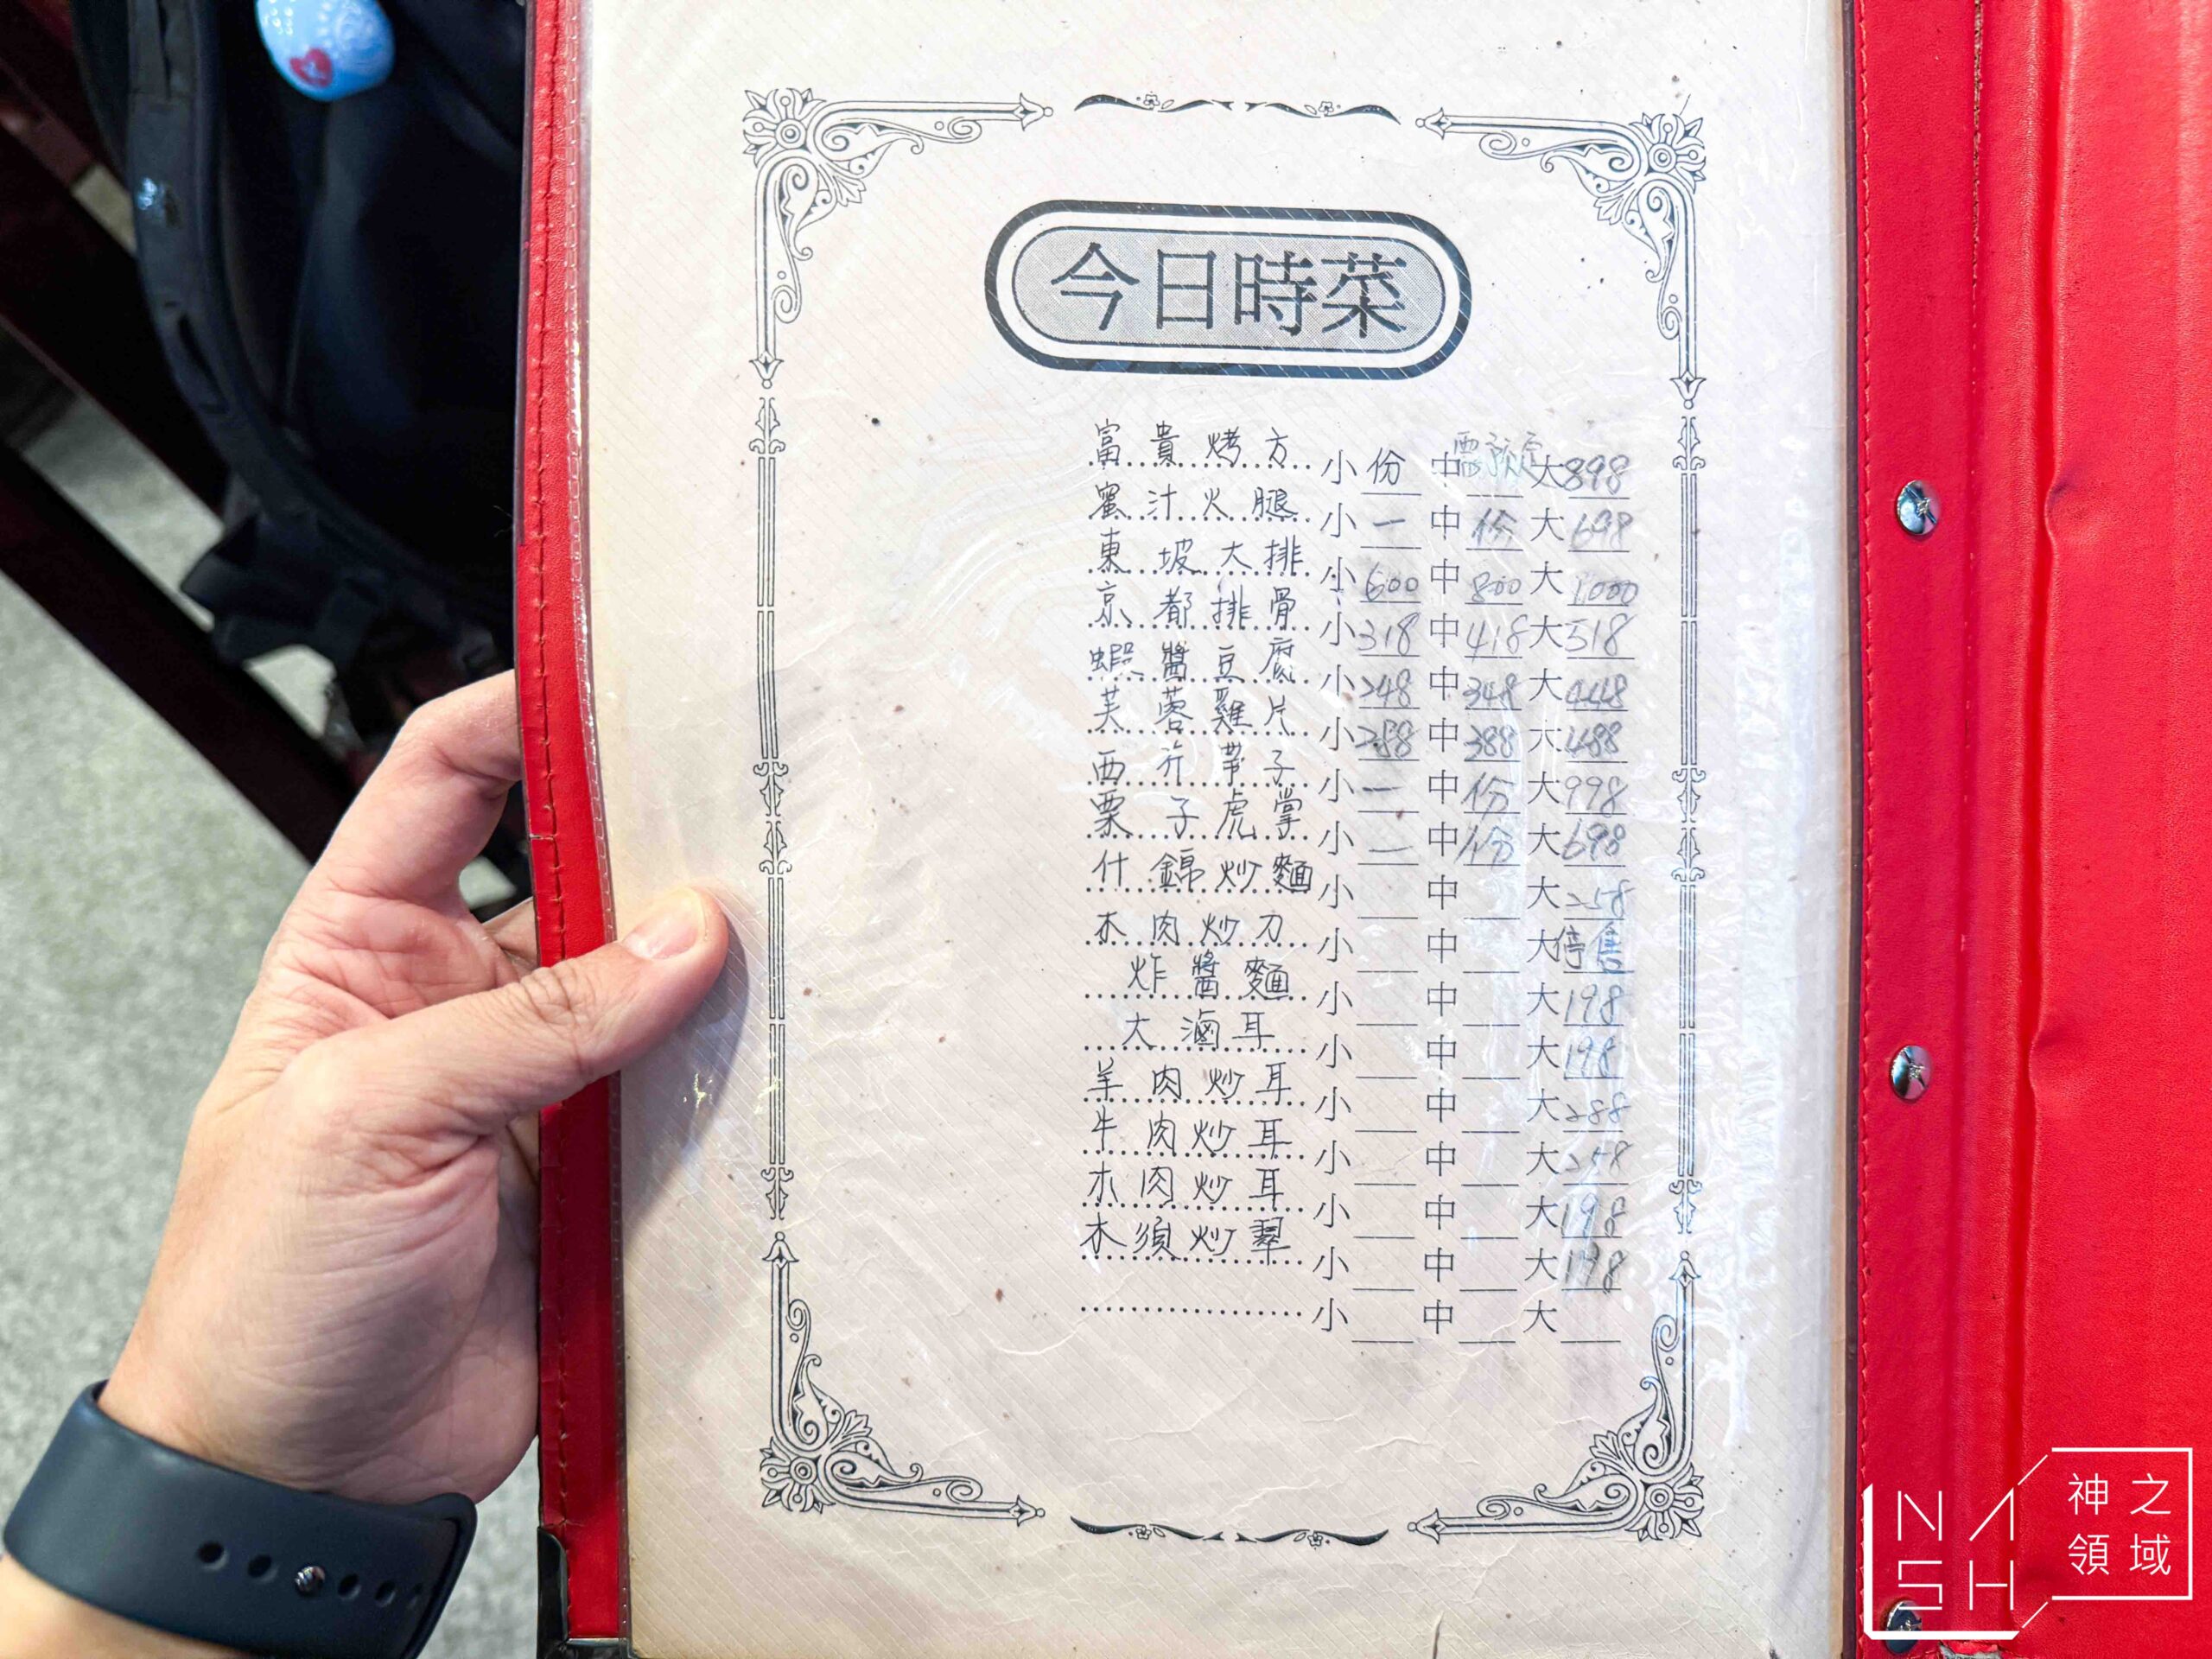 今日時菜
富貴烤方 小份 中需預定 大898
蜜汁火腿 小一 中份 大698
東坡大排 小600 中800 大1000
京都排骨 小318 中418 大518
蝦醬豆腐 小248 中348 大448
芙蓉雞片 小288 中388 大488
西芥帶子 小一 中份 大998
栗子虎掌 小一 中份 大698
什錦炒麵 小 中 大258
木肉炒刀 小 中 大停售
炸醬麵 小 中 大198
大滷耳 小 中 大198
羊肉炒耳 小 中 大288
牛肉炒耳 小 中 大258
木肉炒耳 小 中 大198
木須炒翠 小 中 大198
小 中 大
NASH
神之
領域